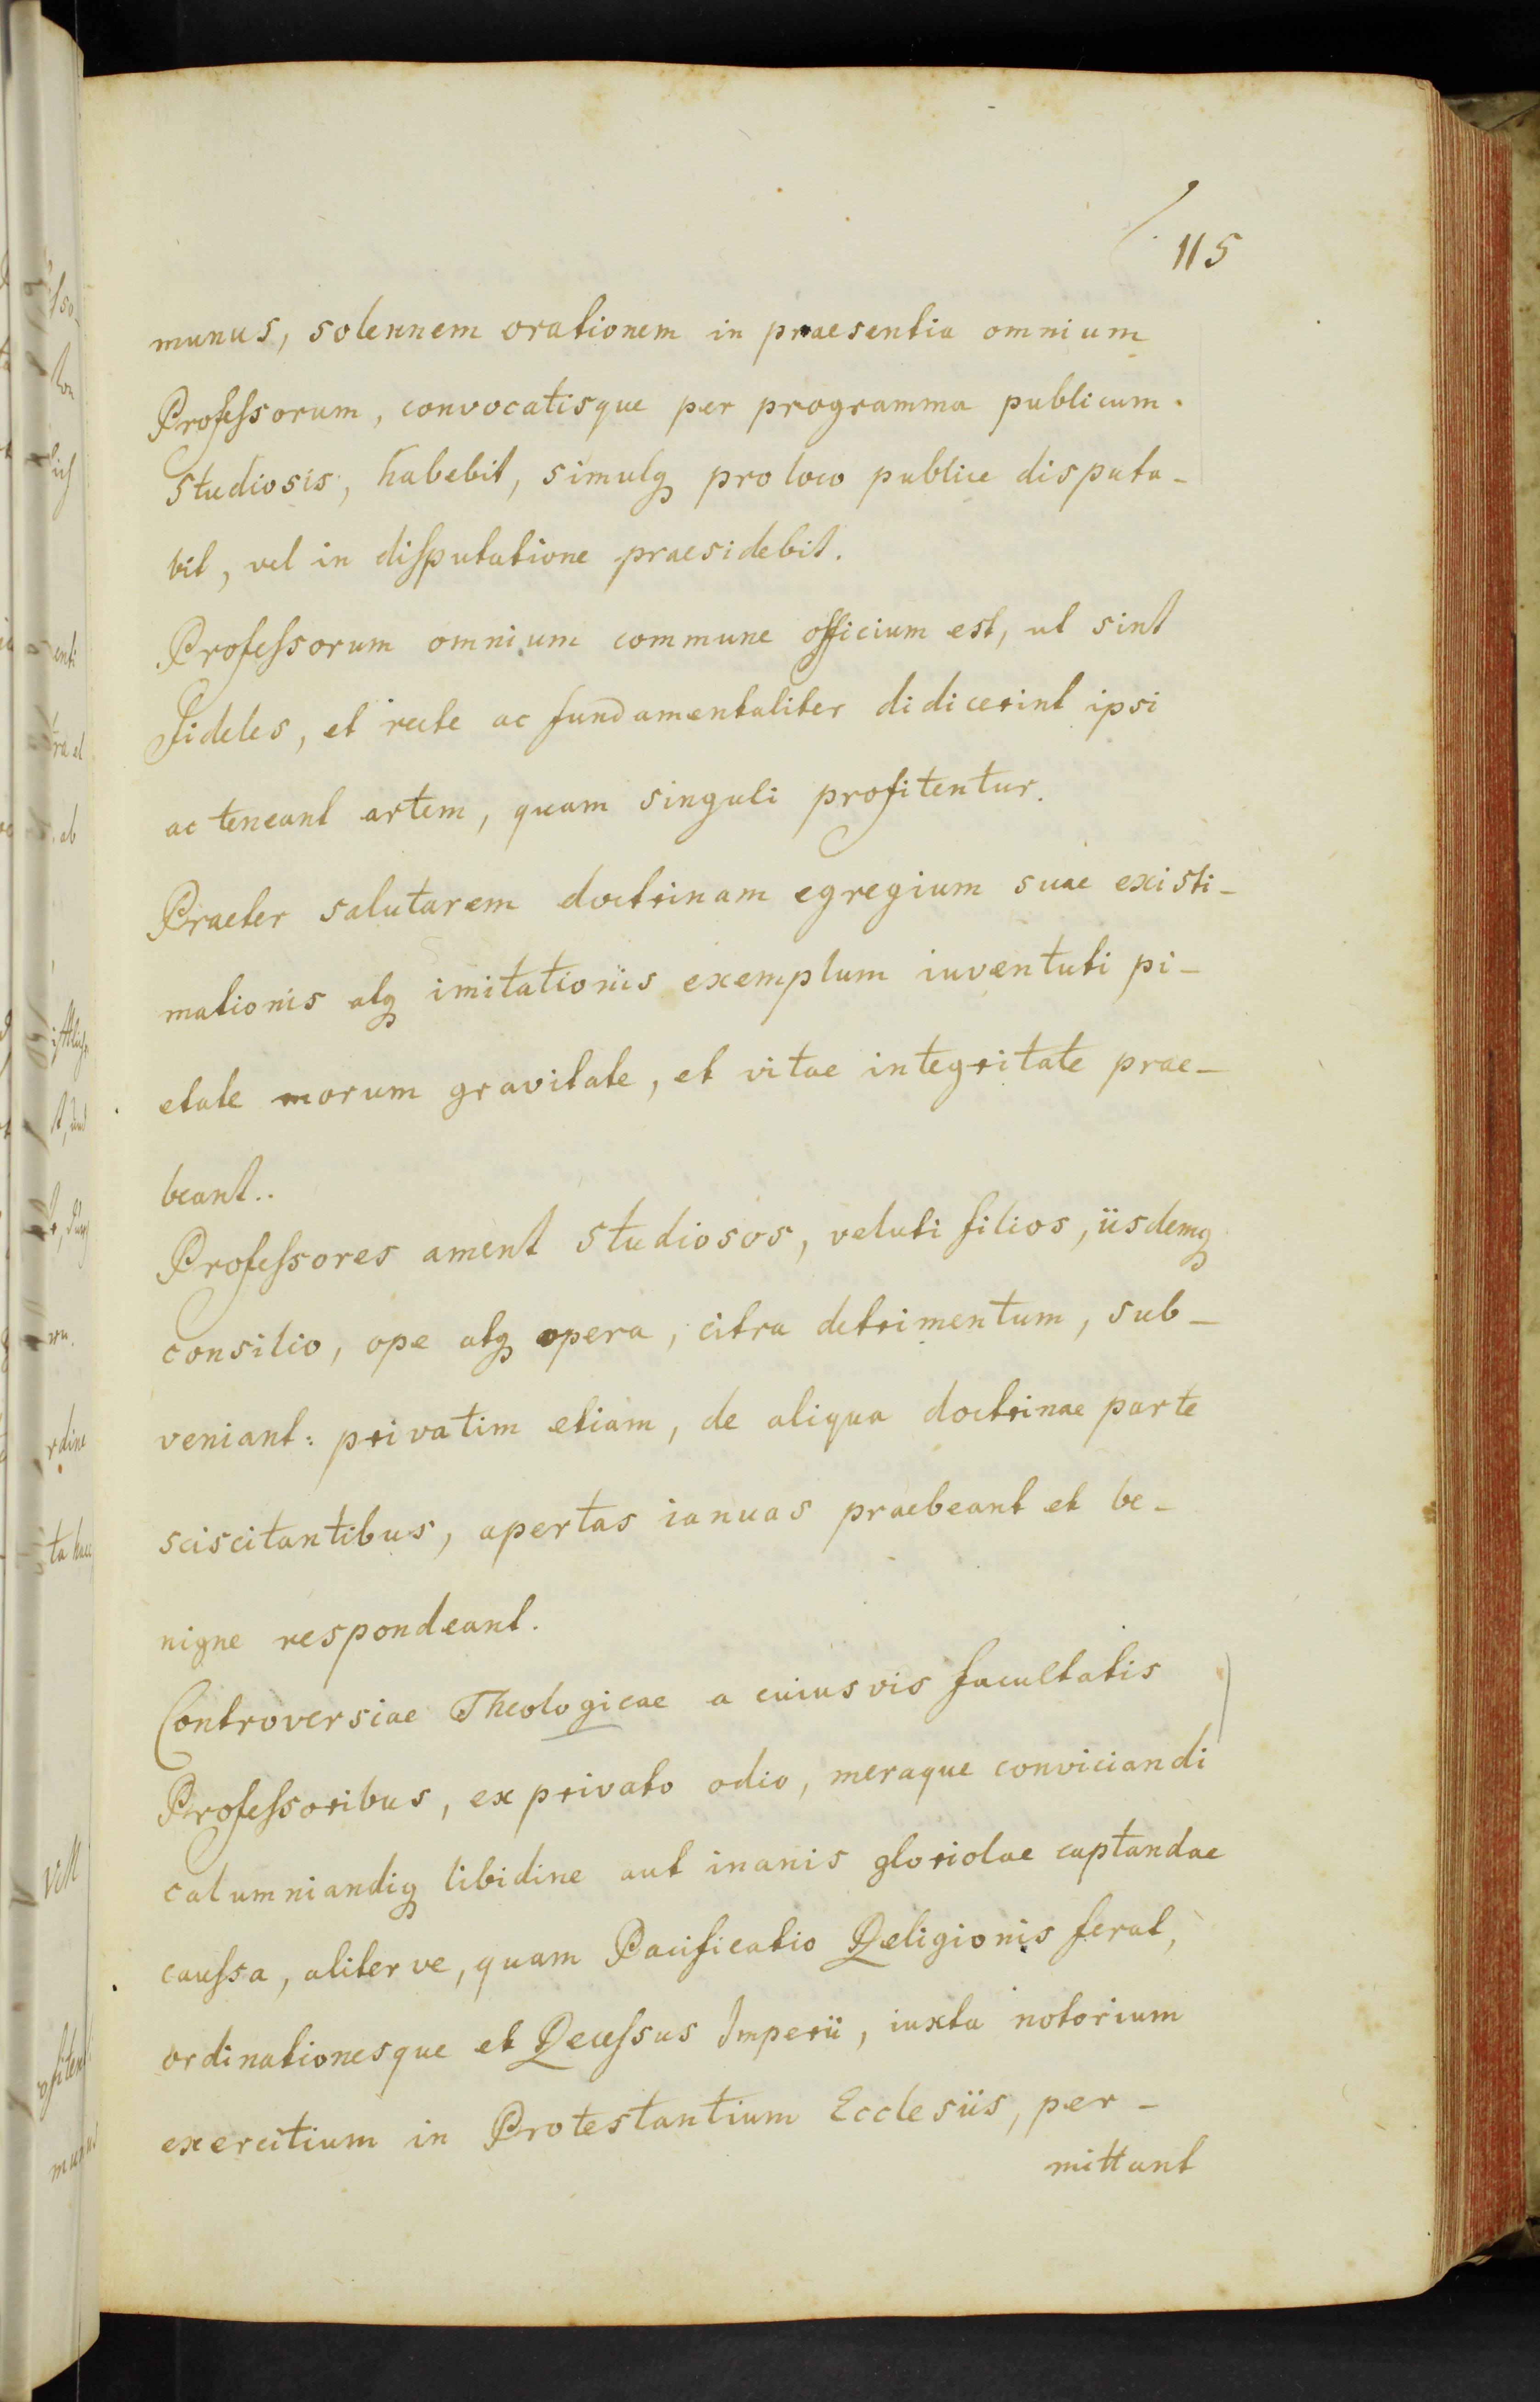 115
munus, solennem orationem in praesentia omnium
Profeſsorum, convocatisque per programma publicum
studiosis, habebit, simulq pro loco publice disputa-
bit, vel in diſputatione praesidebit.
Profeſsorum omnium commune officium est, ut sint
fideles, et recte ac fundamentaliter didicerint ipsi
ac teneant artem, quam singuli profitentur.
Praeter salutarem doctrinam egregium suae existi-
mationis atq imitationis exemplum iuventuti pi-
etate morum gravitate, et vitae integritate prae-
beant..
Profeſsores ament studiosos, veluti filios, iisdemq
consilio, ope atq opera, citra detrimentum, sub-
veniant: privatim etiam, de aliqua doctrinae parte
sciscitantibus, apertas ianuas praebeant et be-
nigne respondeant.
Controversiae Theologicae a cuiusvis facultatis
Profeſsoribus, ex privato odio, meraque conviciandi
calumniandiq libidine aut inanis gloriolae captandae
cauſsa, aliter ve, quam Pacificatio Religionis ferat,
ordinationesque et Receſsus Imperii, iuxta notorium
exercitium in Protestantium Ecclesiis, per-
mittant